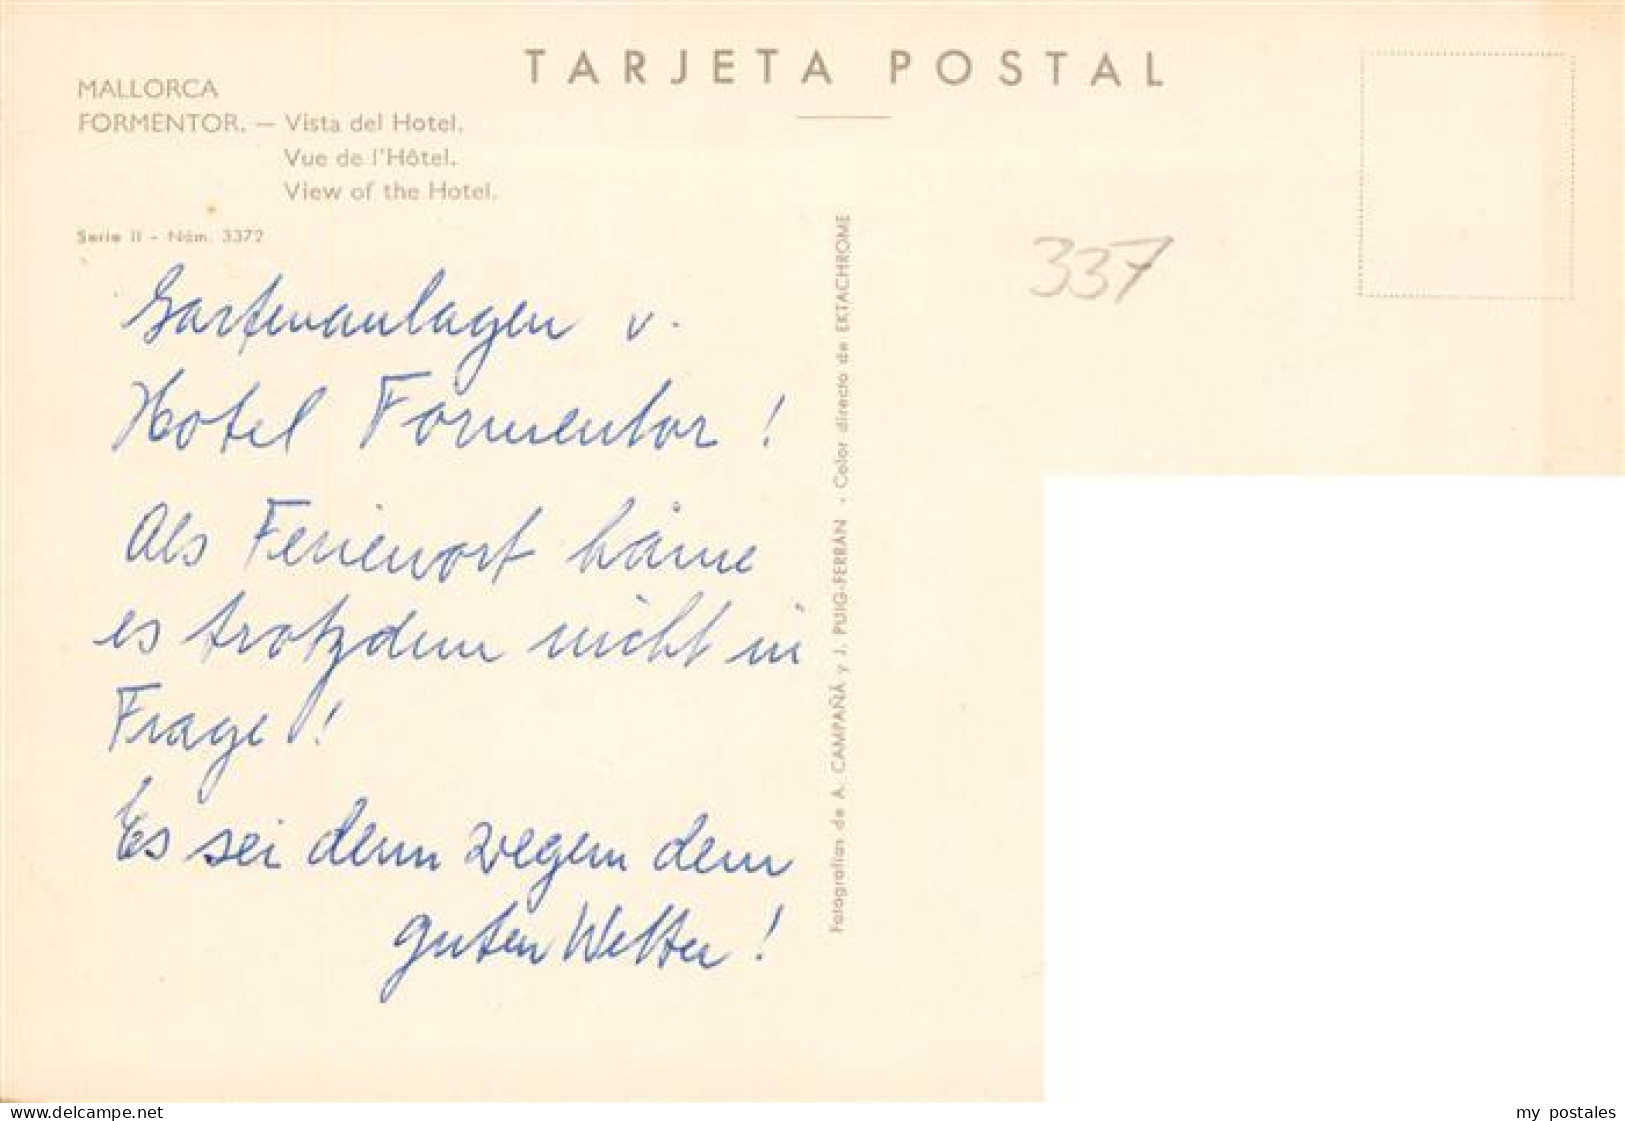 TARJETA POSTAL
MALLORCA
FORMENTOR. — Vista del Hotel.
Vue de l'Hôtel.
View of the Hotel.
Serie II - Núm. 3372
337
Gartenanlagen v.
Hotel Formentor!
Als Ferienort käme
es trotzdem nicht in
Frage!
Es sei denn wegem dem
guten Wetter!
Fotografías de A. CAMPAÑÁ y J. PUIG-FERRÁN - Color directo de EKTACHROME
www.delcampe.net
my_postales